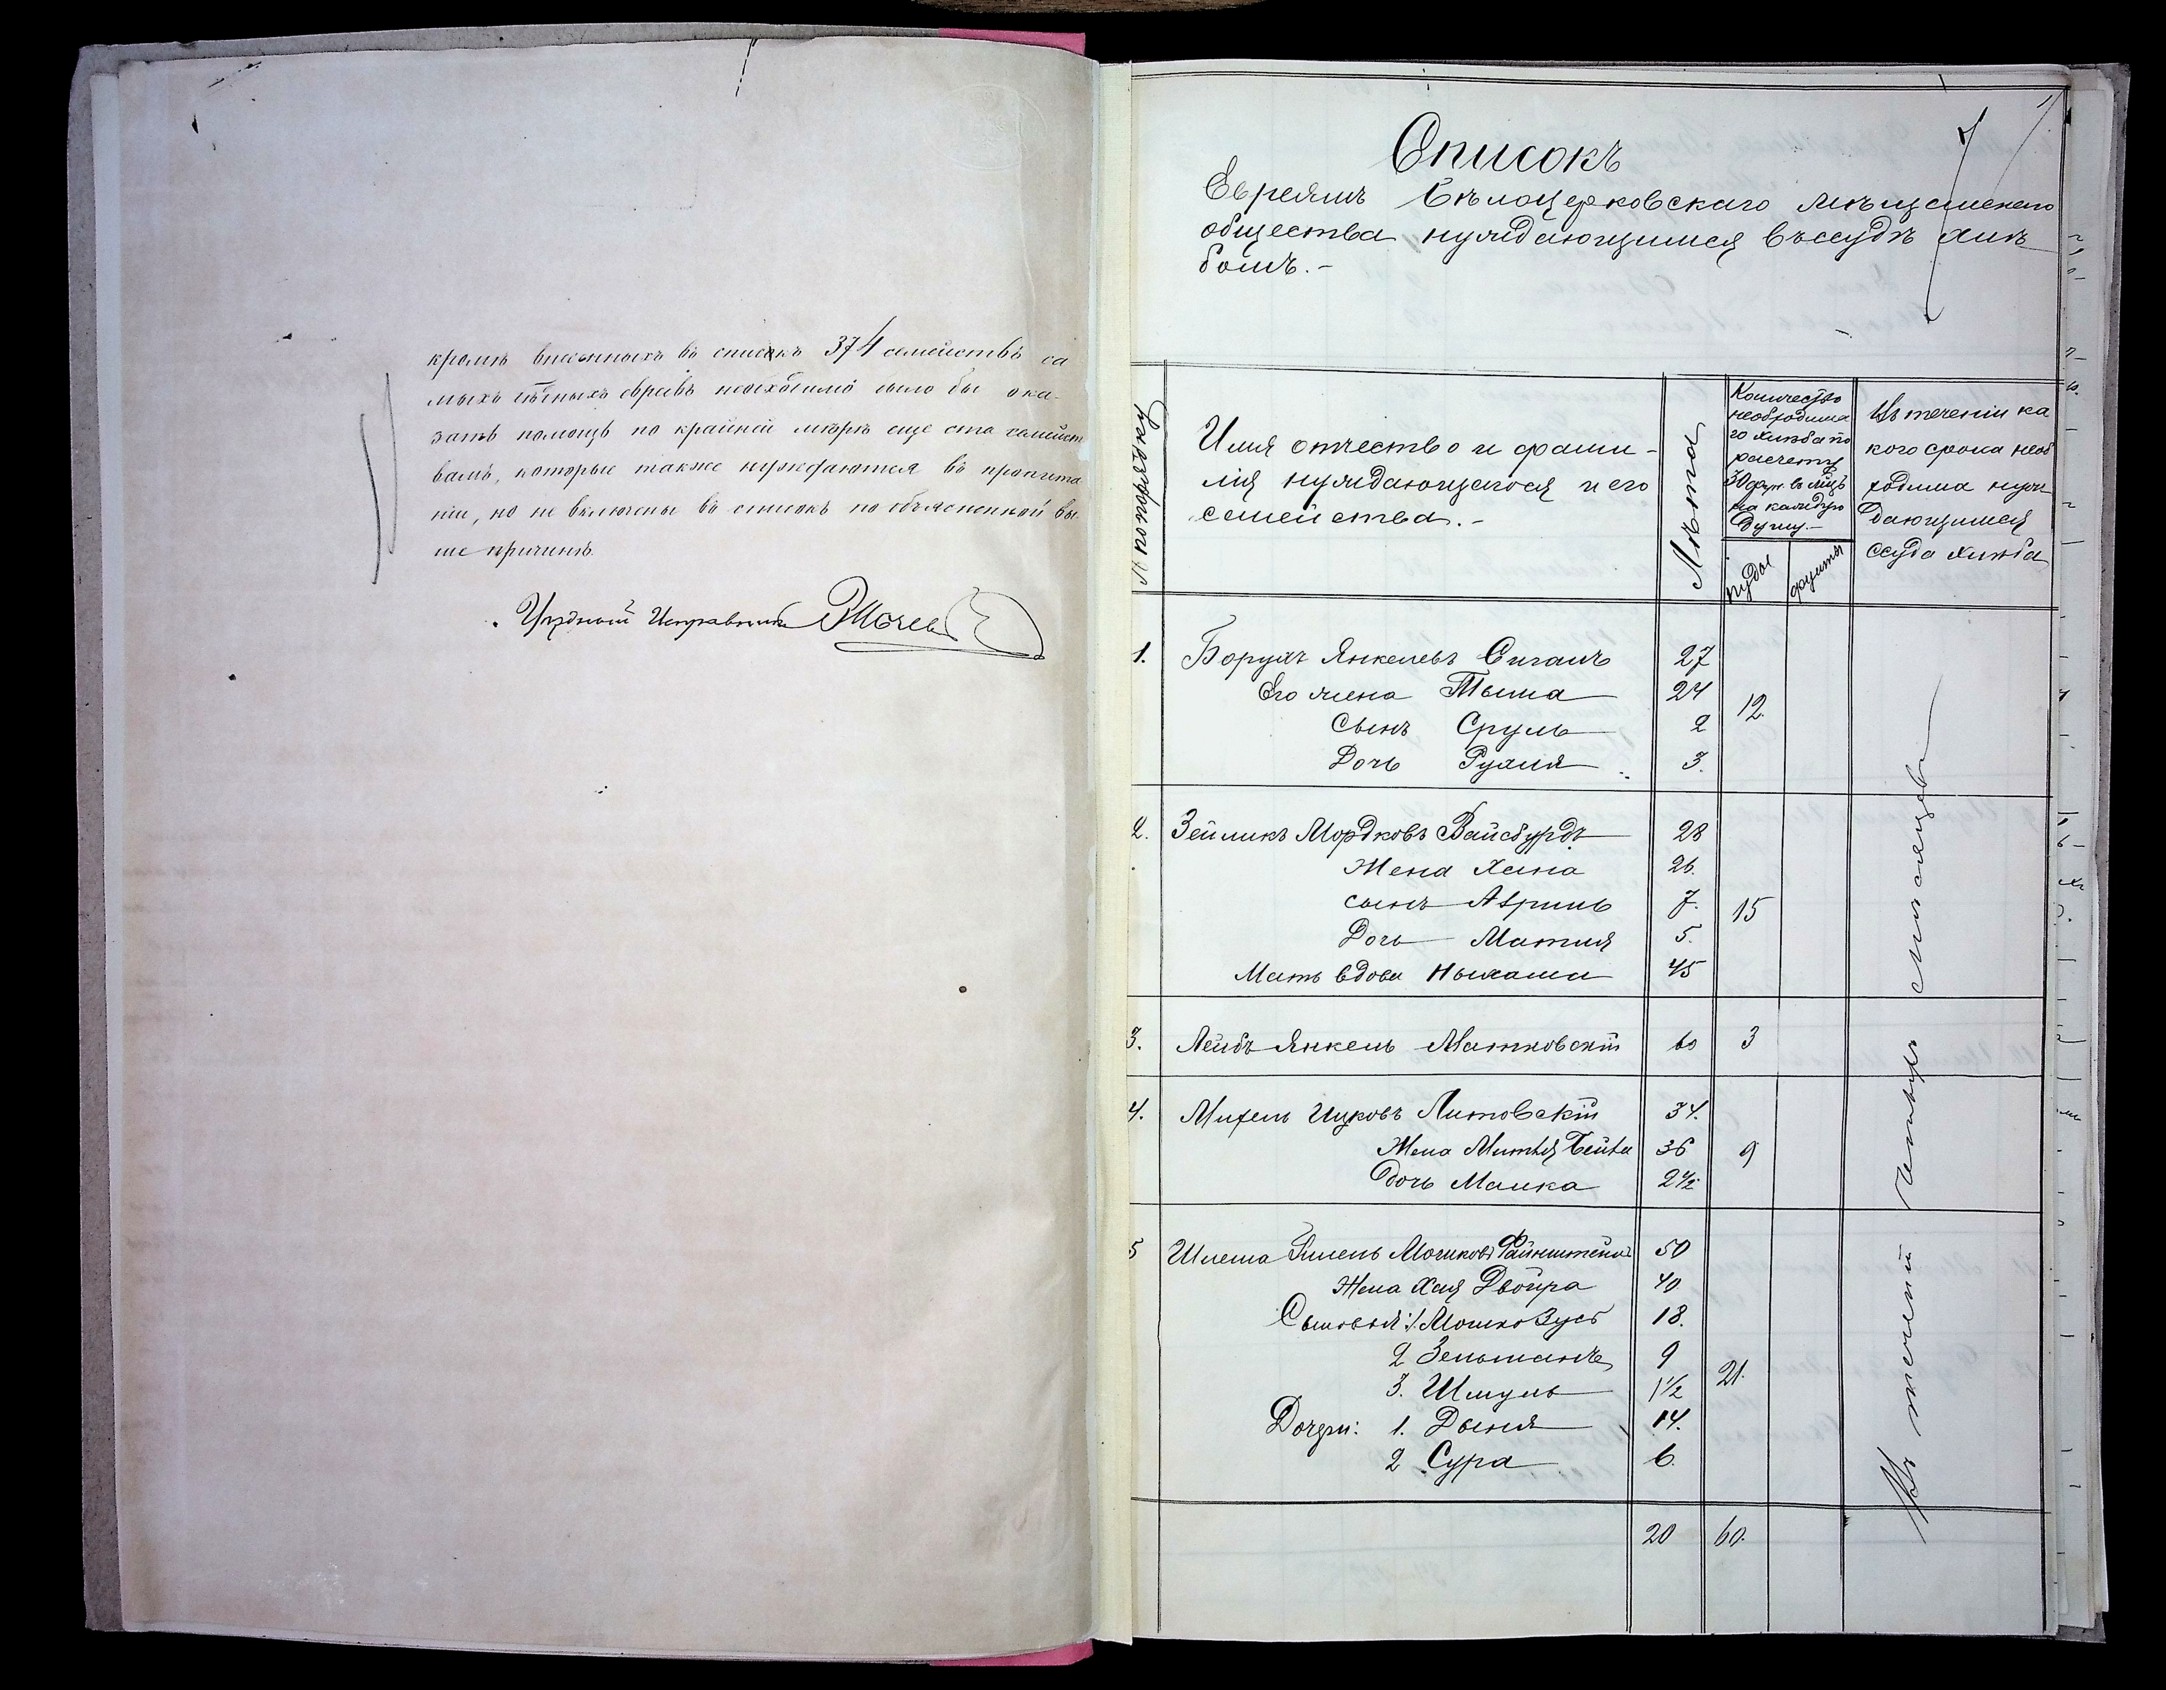 кромѣ внесенныхъ въ списокъ 374 семействъ са
мыхъ бѣдныхъ евреевъ необходимо было бы ока-
зать помощь по крайней мѣрѣ еще ста семейст
вамъ, которые также нуждаются въ пропита
ніи, но не включены въ списокъ по объясненной вы
ше причинѣ.
Уѣздный Исправникъ
Списокъ
Евреямъ Бѣлоцерковскаго мѣщанскаго
общества нуждающимся въ ссудѣ хлѣ
бомъ.-
№ по порядку
Имя отчество и фами-
лія нуждающагося и его
семейства.-
Лѣта
Количество
необходима
го хлѣба по
расчету
30 фун. въ мѣсъ
на каждую
душу.-
пуды
фунты
Въ теченіи ка
кого срока необ
ходима нуж
дающимся
ссуда хлѣба
1. Борухъ Янкелевъ Сиганъ 27
Его жена Тыма 24 12.
Сынъ Сруль 2
Дочь Рухля 3.
2. Зейликъ Мордковъ Вайсбурдъ 28
Жена Хана 26.
сынъ Аврумъ 7. 15
Дочь Матля 5.
Мать вдова Ныхама 45
3. Лейбъ Янкель Матковскій 60 3
4. Михель Ицковъ Литовскій 34.
Жена Бейла 36 9
Дочь Малка 2½
5 Шлема Мошковъ Файнштейнъ 50
Жена Хая Двойра 40
Сыновья: 1. Мошко Зусь 18.
2 Зельманъ 9
3. Шмуль 1½ 21.
Дочери: 1. Дыня 14.
2 Сура 6.
20 60.
Въ теченіи четырехъ мѣсяцевъ